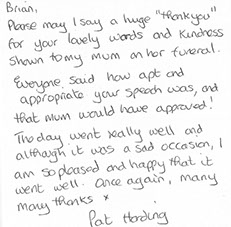 Brian,
Please may I say a huge "thankyou"
for your lovely words and kindness
shown to my mum on her funeral.
Everyone said how apt and
appropriate your speech was, and
that mum would have approved!
The day went really well and
although it was a sad occasion, I
am so pleased and happy that it
went well. Once again, many
many thanks x
Pat Harding